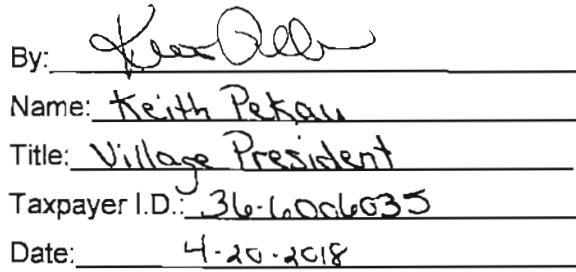 By:
Name: Keith Pekau
Title: Village President
Taxpayer I.D.: 36-6006035
Date: 4-20-2018